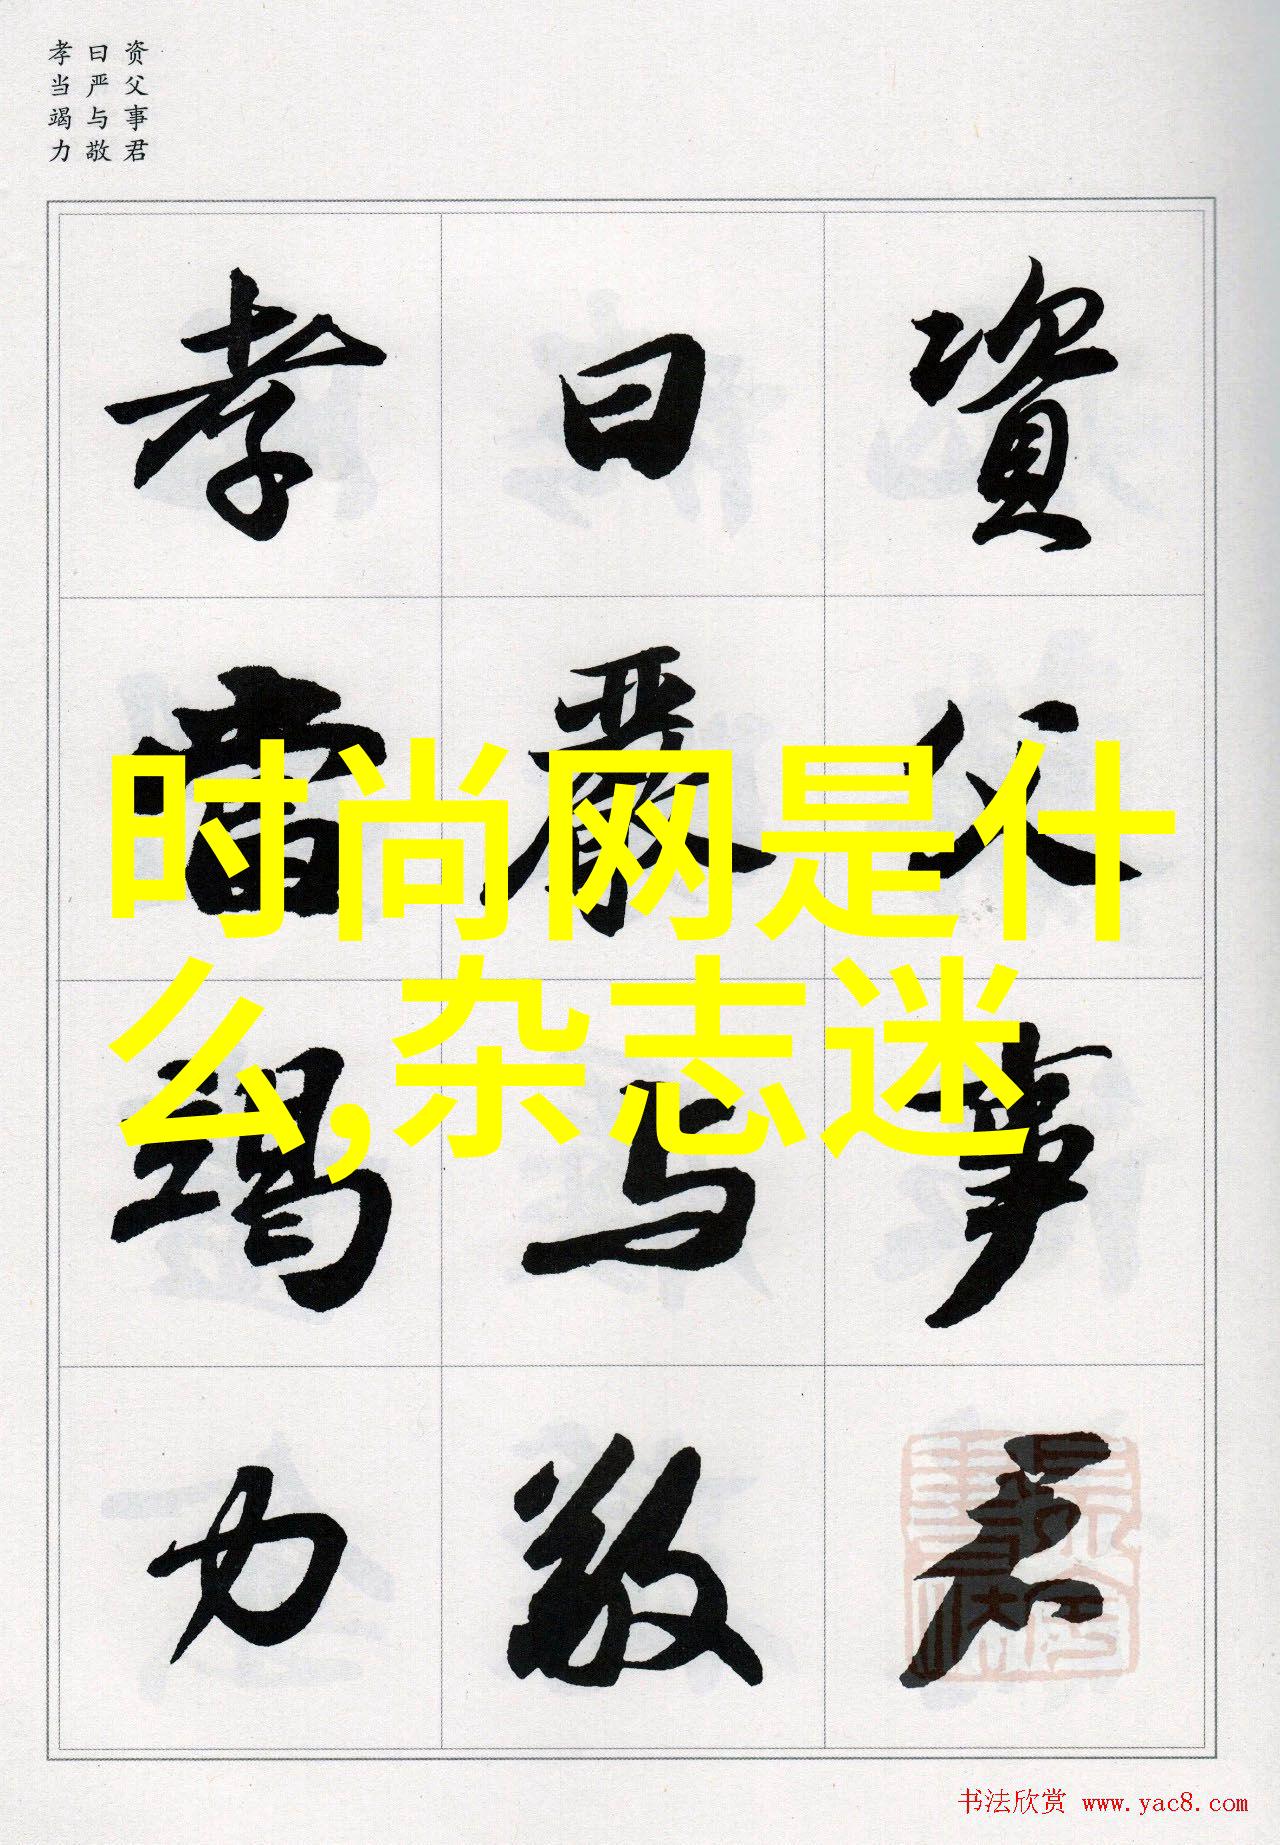 资父事君
曰严与敬
孝当竭力
資父事君
曰嚴与敬
孝當竭力
时尚网是什
么,杂志迷
书法欣赏 www.yac8.com